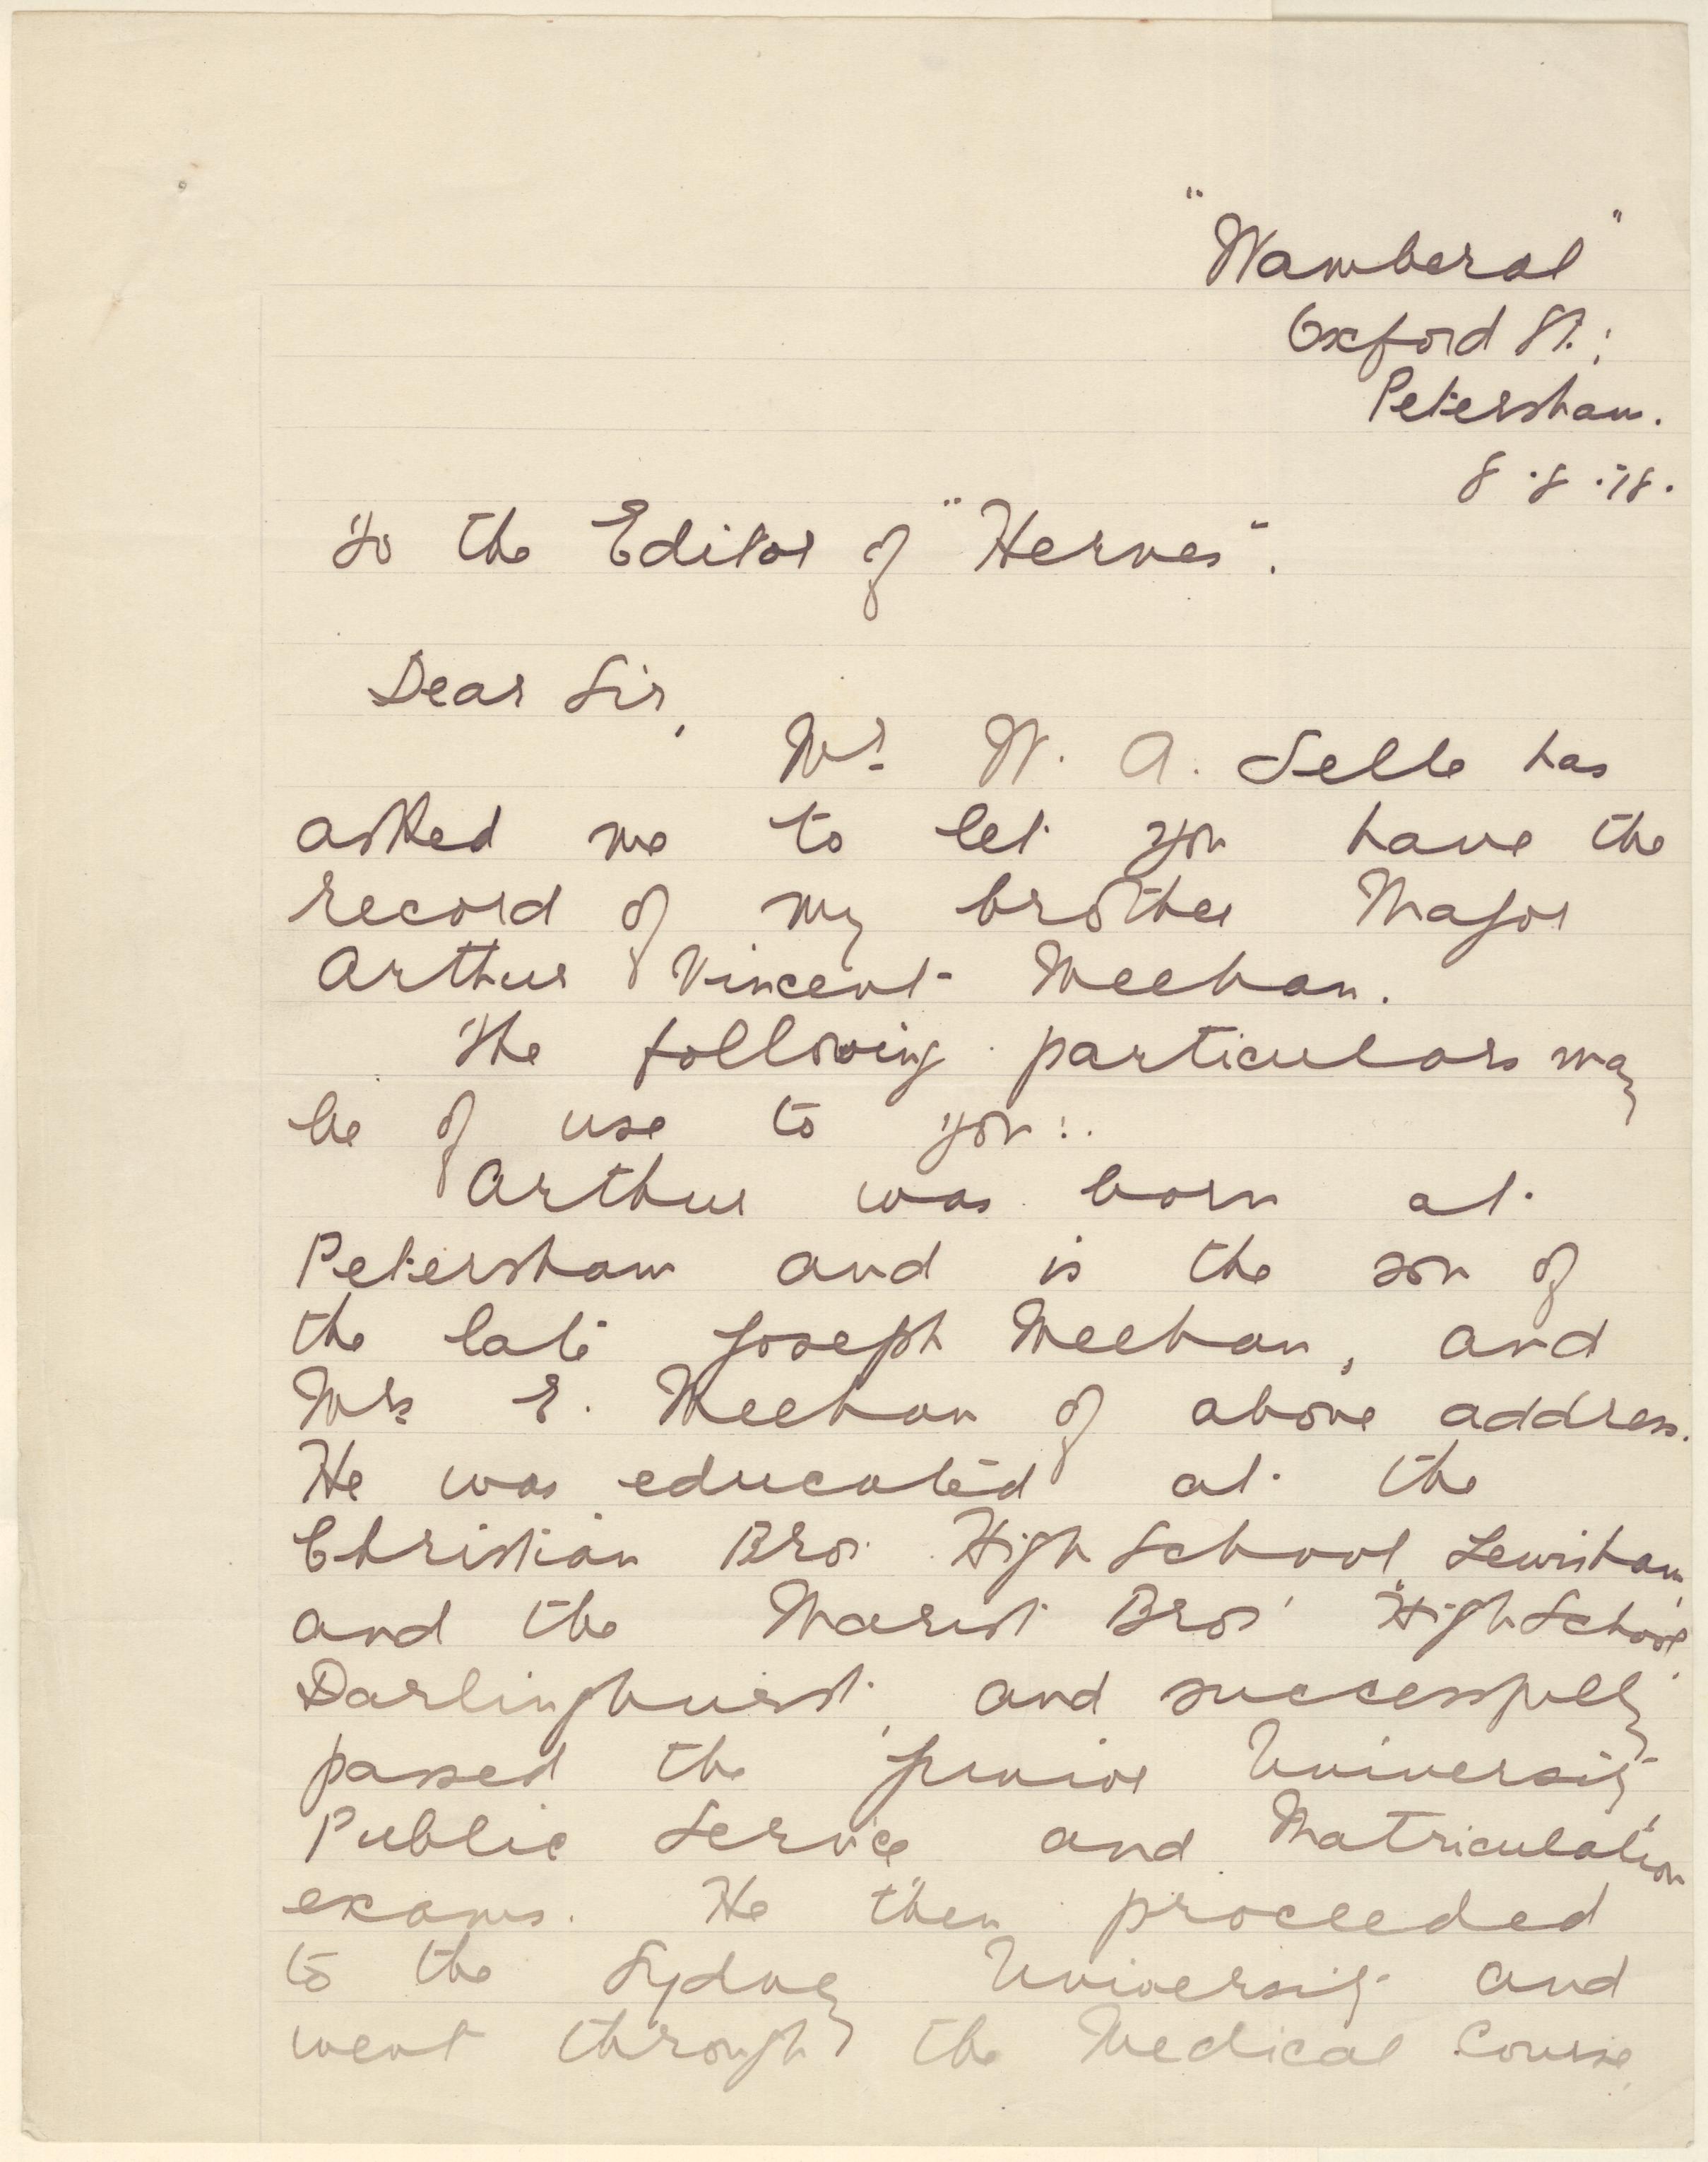 "Wamberal"
Oxford St.;
Petersham.
8.8.18.
To the Editor of "Hermes".
Dear Sir,
Mr. W. A. Selle has
asked me to let you have the
record of my brother Major
Arthur Vincent Meehan.
The following particulars may
be of use to you:.
Arthur was born at
Petersham and is the son of
the late Joseph Meehan, and
Mrs E. Meehan of above address.
He was educated at the
Christian Bros. High School, Lewisham,
and the Marist Bros' High School,
Darlinghurst, and successfully
passed the Junior University
Public Service and Matriculation
exams. He then proceeded
to the Sydney University and
went through the Medical Course,